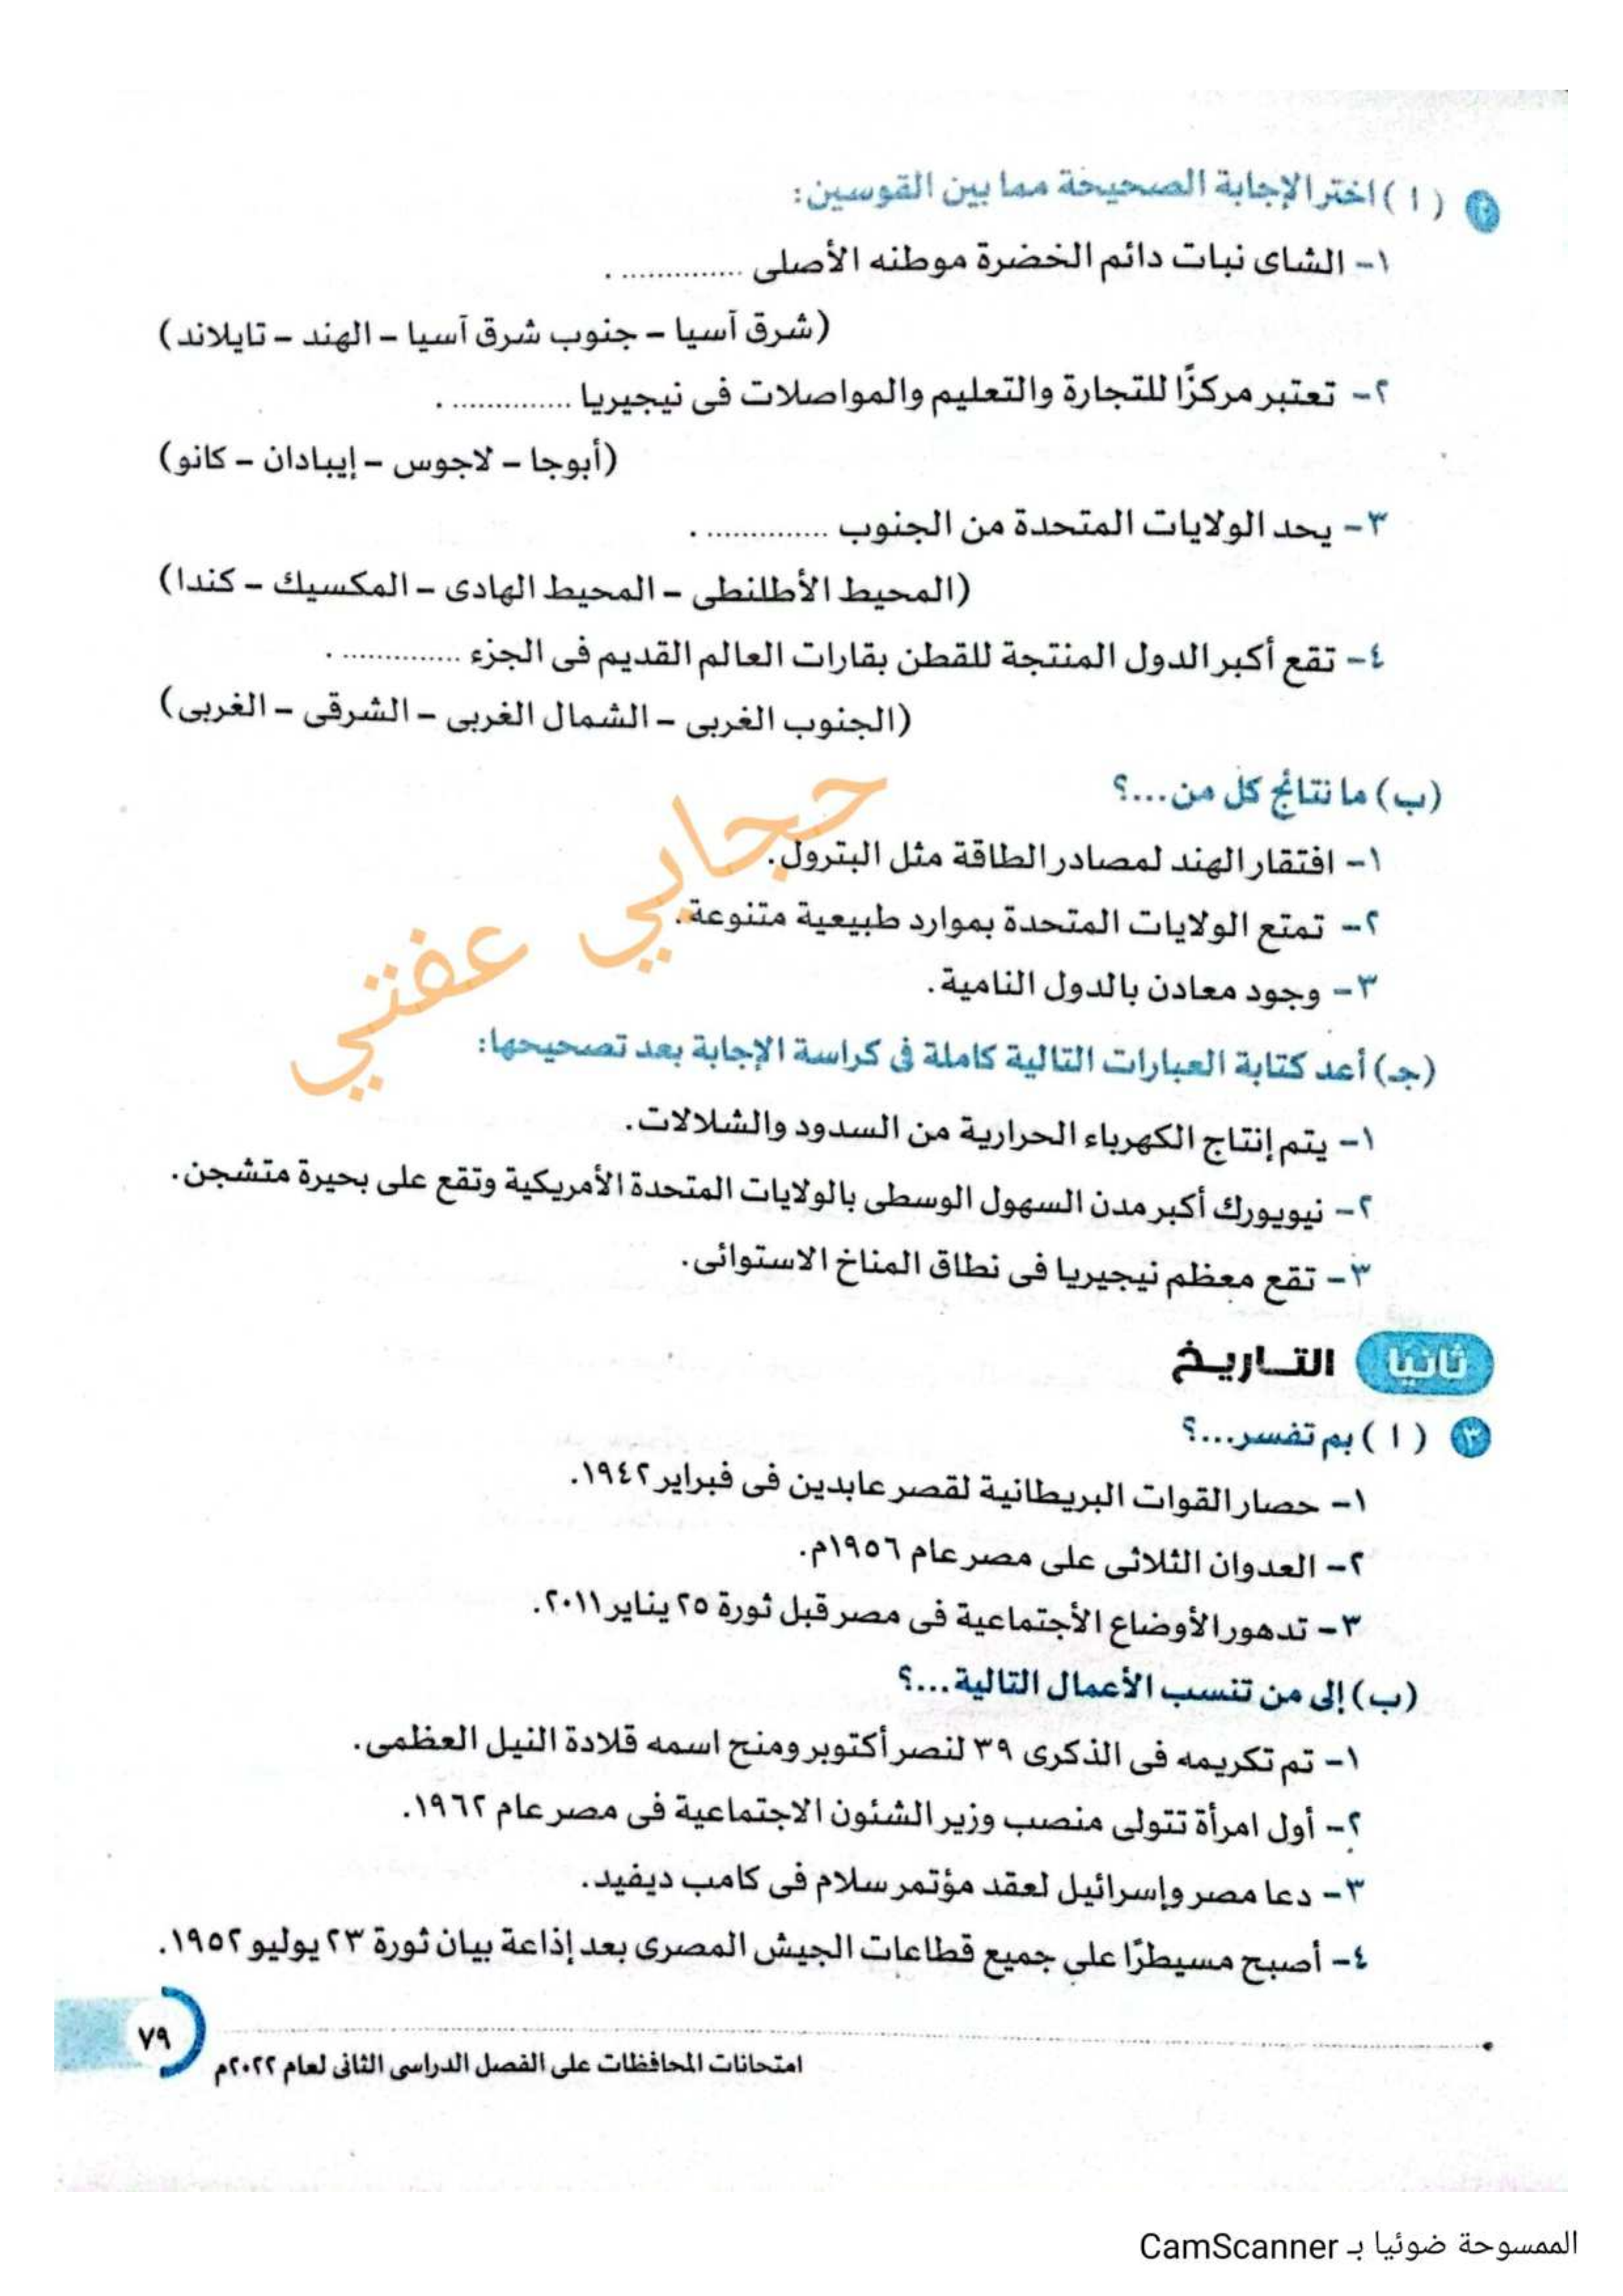 ٢ ( ١ ) اختر الإجابة الصحيحة مما بين القوسين:
١- الشاى نبات دائم الخضرة موطنه الأصلى .............. .
(شرق آسيا - جنوب شرق آسيا - الهند - تايلاند)
٢- تعتبر مركزًا للتجارة والتعليم والمواصلات فى نيجيريا .............. .
(أبوجا - لاجوس - إيبادان - كانو)
٣- يحد الولايات المتحدة من الجنوب .............. .
(المحيط الأطلنطى - المحيط الهادى - المكسيك - كندا)
٤- تقع أكبر الدول المنتجة للقطن بقارات العالم القديم فى الجزء .............. .
(الجنوب الغربى - الشمال الغربى - الشرقى - الغربى)
(ب) ما نتائج كل من...؟
١- افتقار الهند لمصادر الطاقة مثل البترول.
٢- تمتع الولايات المتحدة بموارد طبيعية متنوعة.
٣- وجود معادن بالدول النامية.
حجابي عفتي
(جـ) أعد كتابة العبارات التالية كاملة فى كراسة الإجابة بعد تصحيحها:
١- يتم إنتاج الكهرباء الحرارية من السدود والشلالات.
٢- نيويورك أكبر مدن السهول الوسطى بالولايات المتحدة الأمريكية وتقع على بحيرة متشجن.
٣- تقع معظم نيجيريا فى نطاق المناخ الاستوائى.
ثانيا التاريخ
٣ ( ١ ) بم تفسر...؟
١- حصار القوات البريطانية لقصر عابدين فى فبراير ١٩٤٢.
٢- العدوان الثلاثى على مصر عام ١٩٥٦م.
٣- تدهور الأوضاع الأجتماعية فى مصر قبل ثورة ٢٥ يناير ٢٠١١.
(ب) إلى من تنسب الأعمال التالية...؟
١- تم تكريمه فى الذكرى ٣٩ لنصر أكتوبر ومنح اسمه قلادة النيل العظمى.
٢- أول امرأة تتولى منصب وزير الشئون الاجتماعية فى مصر عام ١٩٦٢.
٣- دعا مصر وإسرائيل لعقد مؤتمر سلام فى كامب ديفيد.
٤- أصبح مسيطرًا على جميع قطاعات الجيش المصرى بعد إذاعة بيان ثورة ٢٣ يوليو ١٩٥٢.
٧٩
امتحانات المحافظات على الفصل الدراسى الثانى لعام ٢٠٢٢م
الممسوحة ضوئيا بـ CamScanner